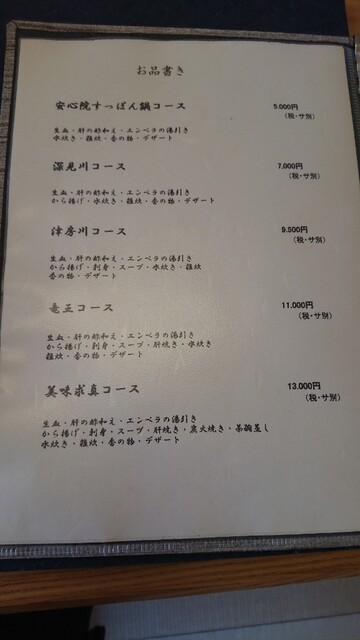 お品書き
安心院すっぽん鍋コース 5.000円
(税・サ別)
生血・肝の酢和え・エンペラの湯引き
水炊き・雑炊・香の物・デザート
深見川コース 7,000円
(税・サ別)
生血・肝の酢和え・エンペラの湯引き
から揚げ・水炊き・雑炊・香の物・デザート
津房川コース 9.500円
(税・サ別)
生血・肝の酢和え・エンペラの湯引き
から揚げ・刺身・スープ・水炊き・雑炊
香の物・デザート
竜王コース 11.000円
(税・サ別)
生血・肝の酢和え・エンペラの湯引き
から揚げ・刺身・スープ・肝焼き・水炊き
雑炊・香の物・デザート
美味求真コース 13.000円
(税・サ別)
生血・肝の酢和え・エンペラの湯引き
から揚げ・刺身・スープ・肝焼き・炭火焼き・茶碗蒸し
水炊き・雑炊・香の物・デザート